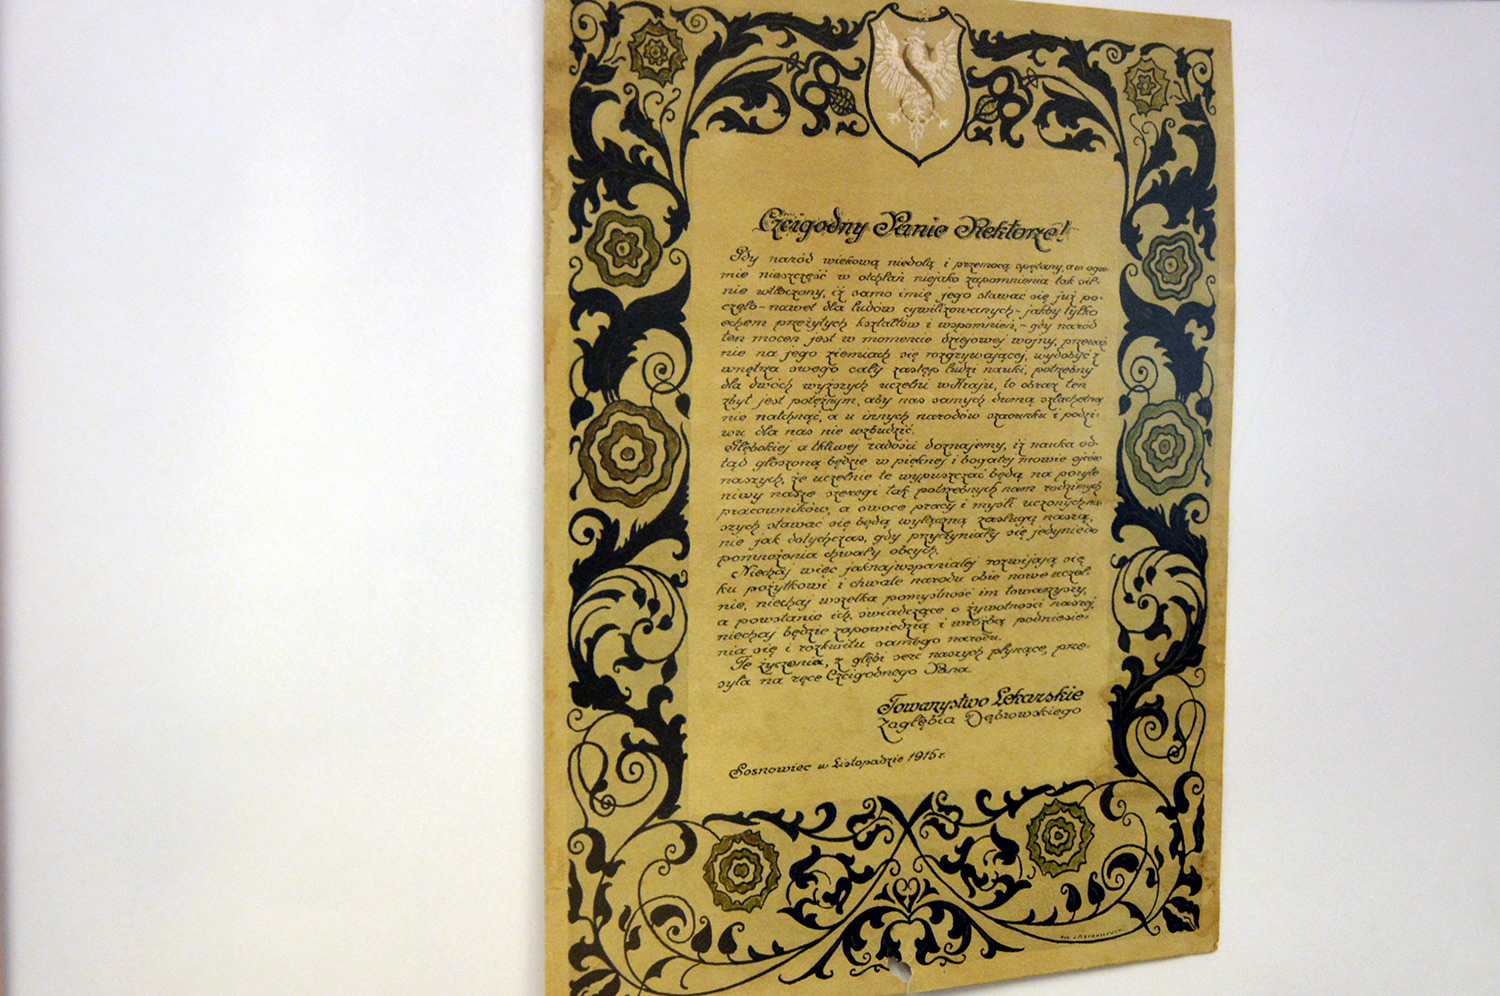 Czcigodny Panie Rektorze!
Gdy naród wiekową niedolą i przemocą spętany, a w ogro-
mie nieszczęść w otchłań niejako zapomnienia tak sil-
nie wtłoczony, iż samo imię jego stawać się już po-
częło - nawet dla ludów cywilizowanych - jakby tylko
echem przeżytych kształtów i wspomnień, - gdy naród
ten mocen jest w momencie dziejowej wojny, przeważ
nie na jego ziemiach się rozgrywającej, wydobyć z
wnętrza swego cały zastęp ludzi nauki, potrzebny
dla dwóch wyższych uczelni w Kraju, to obraz ten
zbyt jest potężnym, aby nas samych dumą szlachetną
nie natchnąć, a u innych narodów szacunku i podzi-
wu dla nas nie wzbudzić.
Głębokiej a tkliwej radości doznajemy, iż nauka od-
tąd głoszoną będzie w pięknej i bogatej mowie ojców
naszych, że uczelnie te wypuszczać będą na
niwy nasze szeregi tak potrzebnych nam rodzimych
pracowników, a owoce pracy i myśli uczonych na-
szych stawać się będą wyłączną zasługą naszą,
nie jak dotychczas, gdy przyczyniały się jedynie do
pomnożenia chwały obcych.
Niechaj więc jaknajwspanialej rozwijają się
ku pożytkowi i chwale narodu obie nowe uczel-
nie, niechaj wszelka pomyślność im towarzyszy,
a powstanie ich, świadczące o żywotności naszej,
niechaj będzie zapowiedzią i wróżbą podniesie-
nia się i rozkwitu samego narodu.
Te życzenia, z głębi serc naszych płynące, prze-
syła na ręce Czcigodnego Pana
Towarzystwo Lekarskie
Zagłębia Dąbrowskiego
Sosnowiec w Listopadzie 1915 r.